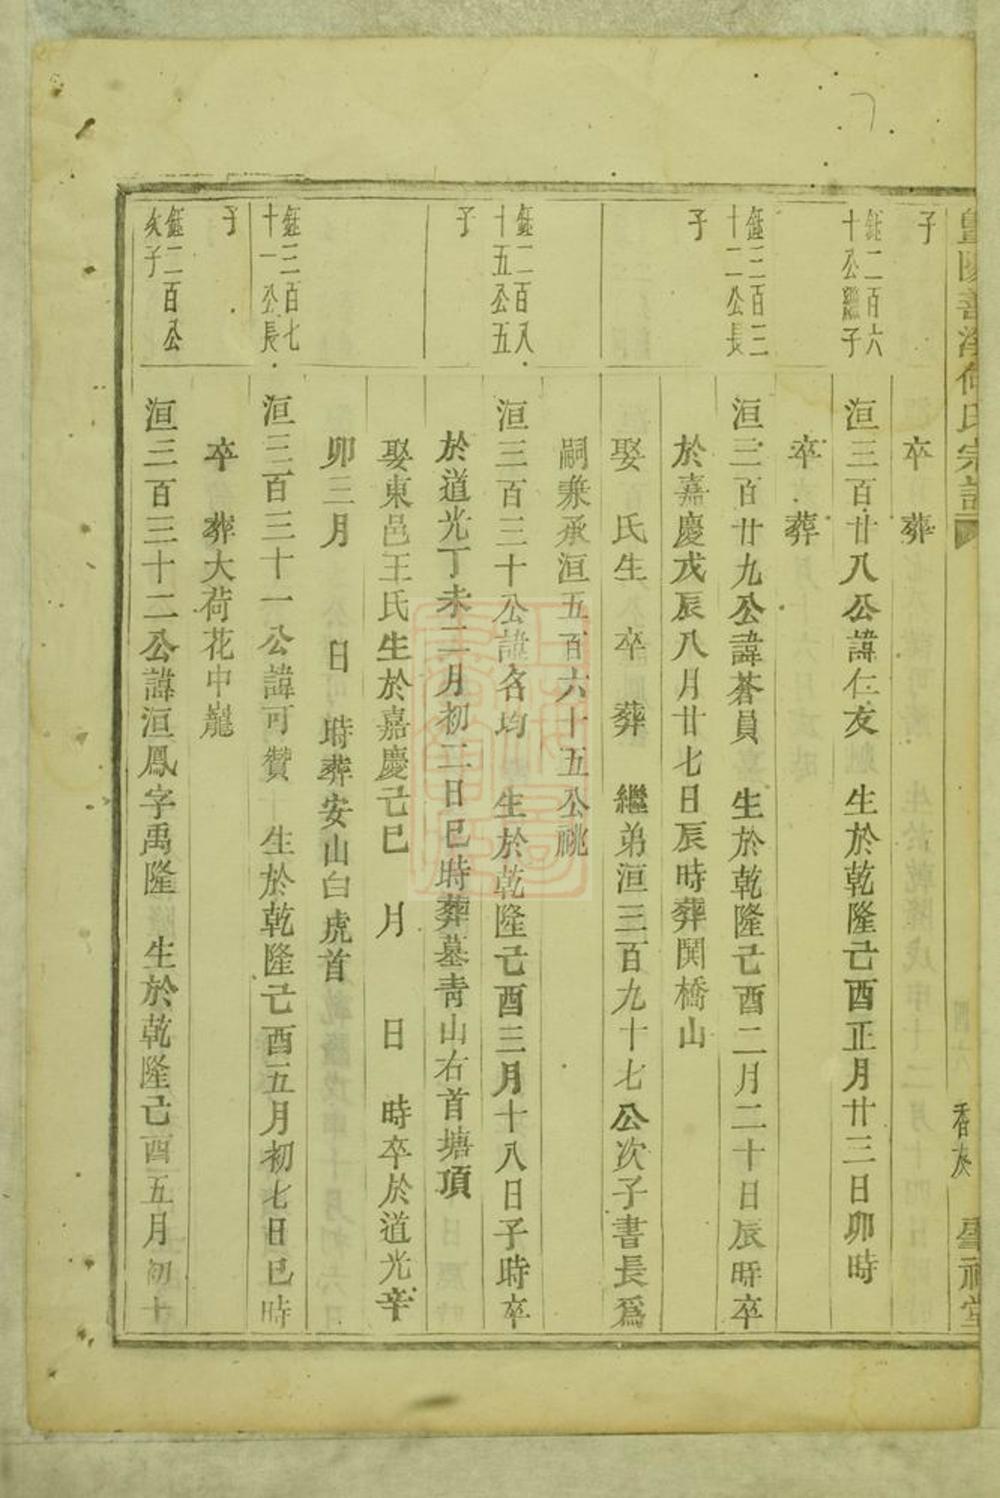 暨陽善溪何氏宗譜 香房 堂
子
卒 葬
鈺二百六
十公繼子
洹三百廿八公諱仁友 生於乾隆己酉正月廿三日卯時
卒 葬
鈺三百三
十二公長
子
洹三百廿九公諱蒼員 生於乾隆己酉二月二十日辰時卒
於嘉慶戊辰八月廿七日辰時葬闕橋山
娶 氏生 卒 葬 繼弟洹三百九十七公次子書長爲
嗣兼承洹五百六十五公祧
鈺二百八
十五公五
子
洹三百三十公諱名均 生於乾隆己酉三月十八日子時卒
於道光丁未二月初二日巳時葬墓青山右首塘項
娶東邑王氏生於嘉慶己巳 月 日 時卒於道光辛
卯三月 日 時葬安山白虎首
鈺三百七
十一公長
子
洹三百三十一公諱可贊 生於乾隆己酉五月初七日巳時
卒 葬大荷花中巃
鈺二百公
次子
洹三百三十二公諱洹鳳字禹隆 生於乾隆己酉五月初十